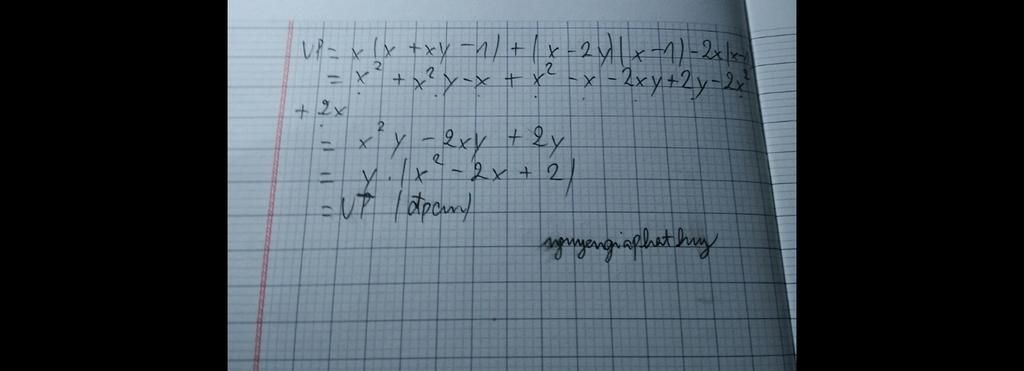 VP = x(x + xy - 1) + (x - 2y)(x - 1) - 2x(x-1)
= x² + x²y - x + x² - x - 2xy + 2y - 2x²
+ 2x
= x²y - 2xy + 2y
= y.(x² - 2x + 2)
= VT (đpcm)
nguyengiaphathuy